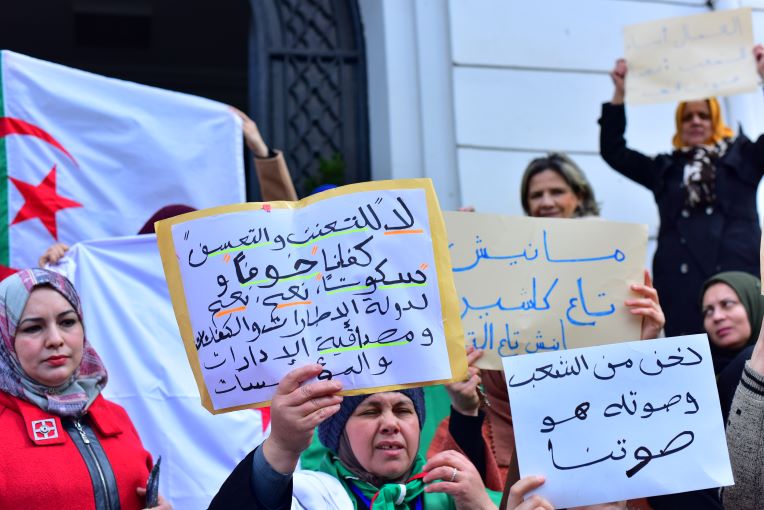 لا "للتعنت والتعسف"
كفانا "خوفاً" و
"سكوتا"، نعم، نعم
لدولة الإطارات والكفاءات
ومصداقية الإدارات
والمؤسسات
مانيش
تاع كاشير
انش تاع
نحن من الشعب
وصوته هو
صوتنا
العمال أبناء
الشعب